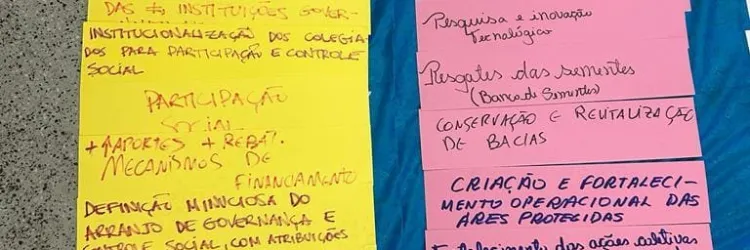 DAS ≠ INSTITUIÇÕES GOVER-
NAMENTAIS
INSTITUCIONALIZAÇÃO DOS COLEGIA
DOS PARA PARTICIPAÇÃO E CONTROLE
SOCIAL
PARTICIPAÇÃO
SOCIAL
+ APORTES + REBAT.
MECANISMOS DE
FINANCIAMENTO
DEFINIÇÃO MINUCIOSA DO
ARRANJO DE GOVERNANÇA E
CONTROLE SOCIAL, COM ATRIBUIÇÕES
Pesquisa e inovação
Tecnológica
Resgates das sementes
(Banco de Sementes)
CONSERVAÇÃO E REVITALIZAÇÃO
DE BACIAS
CRIAÇÃO E FORTALECI-
MENTO OPERACIONAL DAS
ARES PROTECIDAS
Fortalecimento das ações coletivas